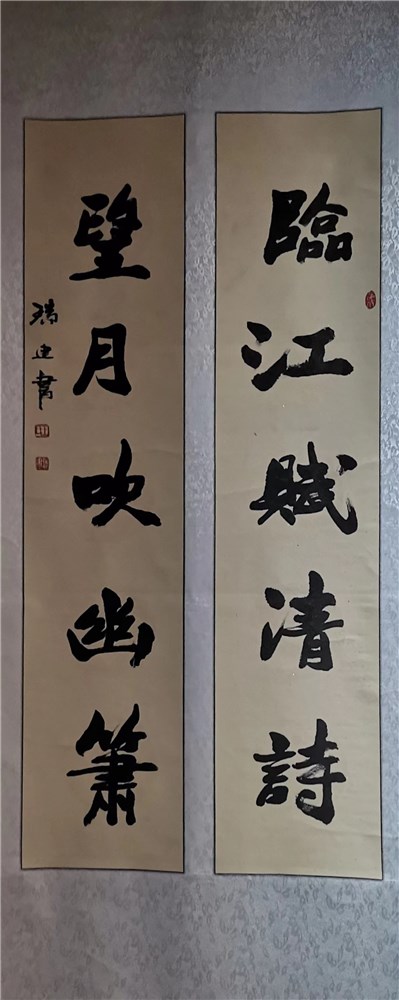 臨江賦清詩
望月吹幽簫
書